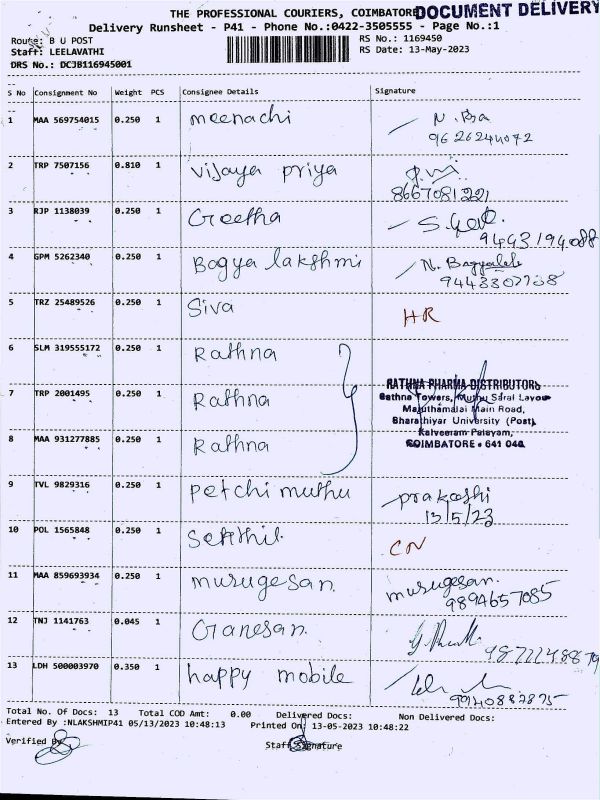 THE PROFESSIONAL COURIERS, COIMBATORE
DOCUMENT DELIVERY
Delivery Runsheet - P41 - Phone No.:0422-3505555 - Page No.:1
Route: B U POST
RS No.: 1169450
Staff: LEELAVATHI
RS Date: 13-May-2023
DRS No.: DCJB116945001
S No Consignment No Weight PCS Consignee Details Signature
1 MAA 569754015 0.250 1 meenachi
9626244072
2 TRP 7507156 0.810 1 Vijaya priya
8667081221
3 RJP 1138039 0.250 1 Geetha
9443194088
4 GPM 5262340 0.250 1 Bagya lakshmi
9443307708
5 TRZ 25489526 0.250 1 Siva HR
6 SLM 319555172 0.250 1 Rathna
7 TRP 2001495 0.250 1 Rathna
8 MAA 931277885 0.250 1 Rathna
RATHNA PHARMA DISTRIBUTORS
Rathna Towers, Muthu Saral Layout
Maruthamalai Main Road,
Bharathiyar University (Post),
Kalveeram Palayam,
COIMBATORE - 641 046
9 TVL 9829316 0.250 1 petchi muthu prakashi
13/5/23
10 POL 1565848 0.250 1 Senthil CN
11 MAA 859693934 0.250 1 murugesan murugesan
9894657085
12 TNJ 1141763 0.045 1 Ganesan
13 LDH 500003970 0.350 1 happy mobile
Total No. Of Docs: 13 Total COD Amt: 0.00 Delivered Docs: Non Delivered Docs:
Entered By :NLAKSHMIP41 05/13/2023 10:48:13 Printed On: 13-05-2023 10:48:22
Verified By Staff Signature